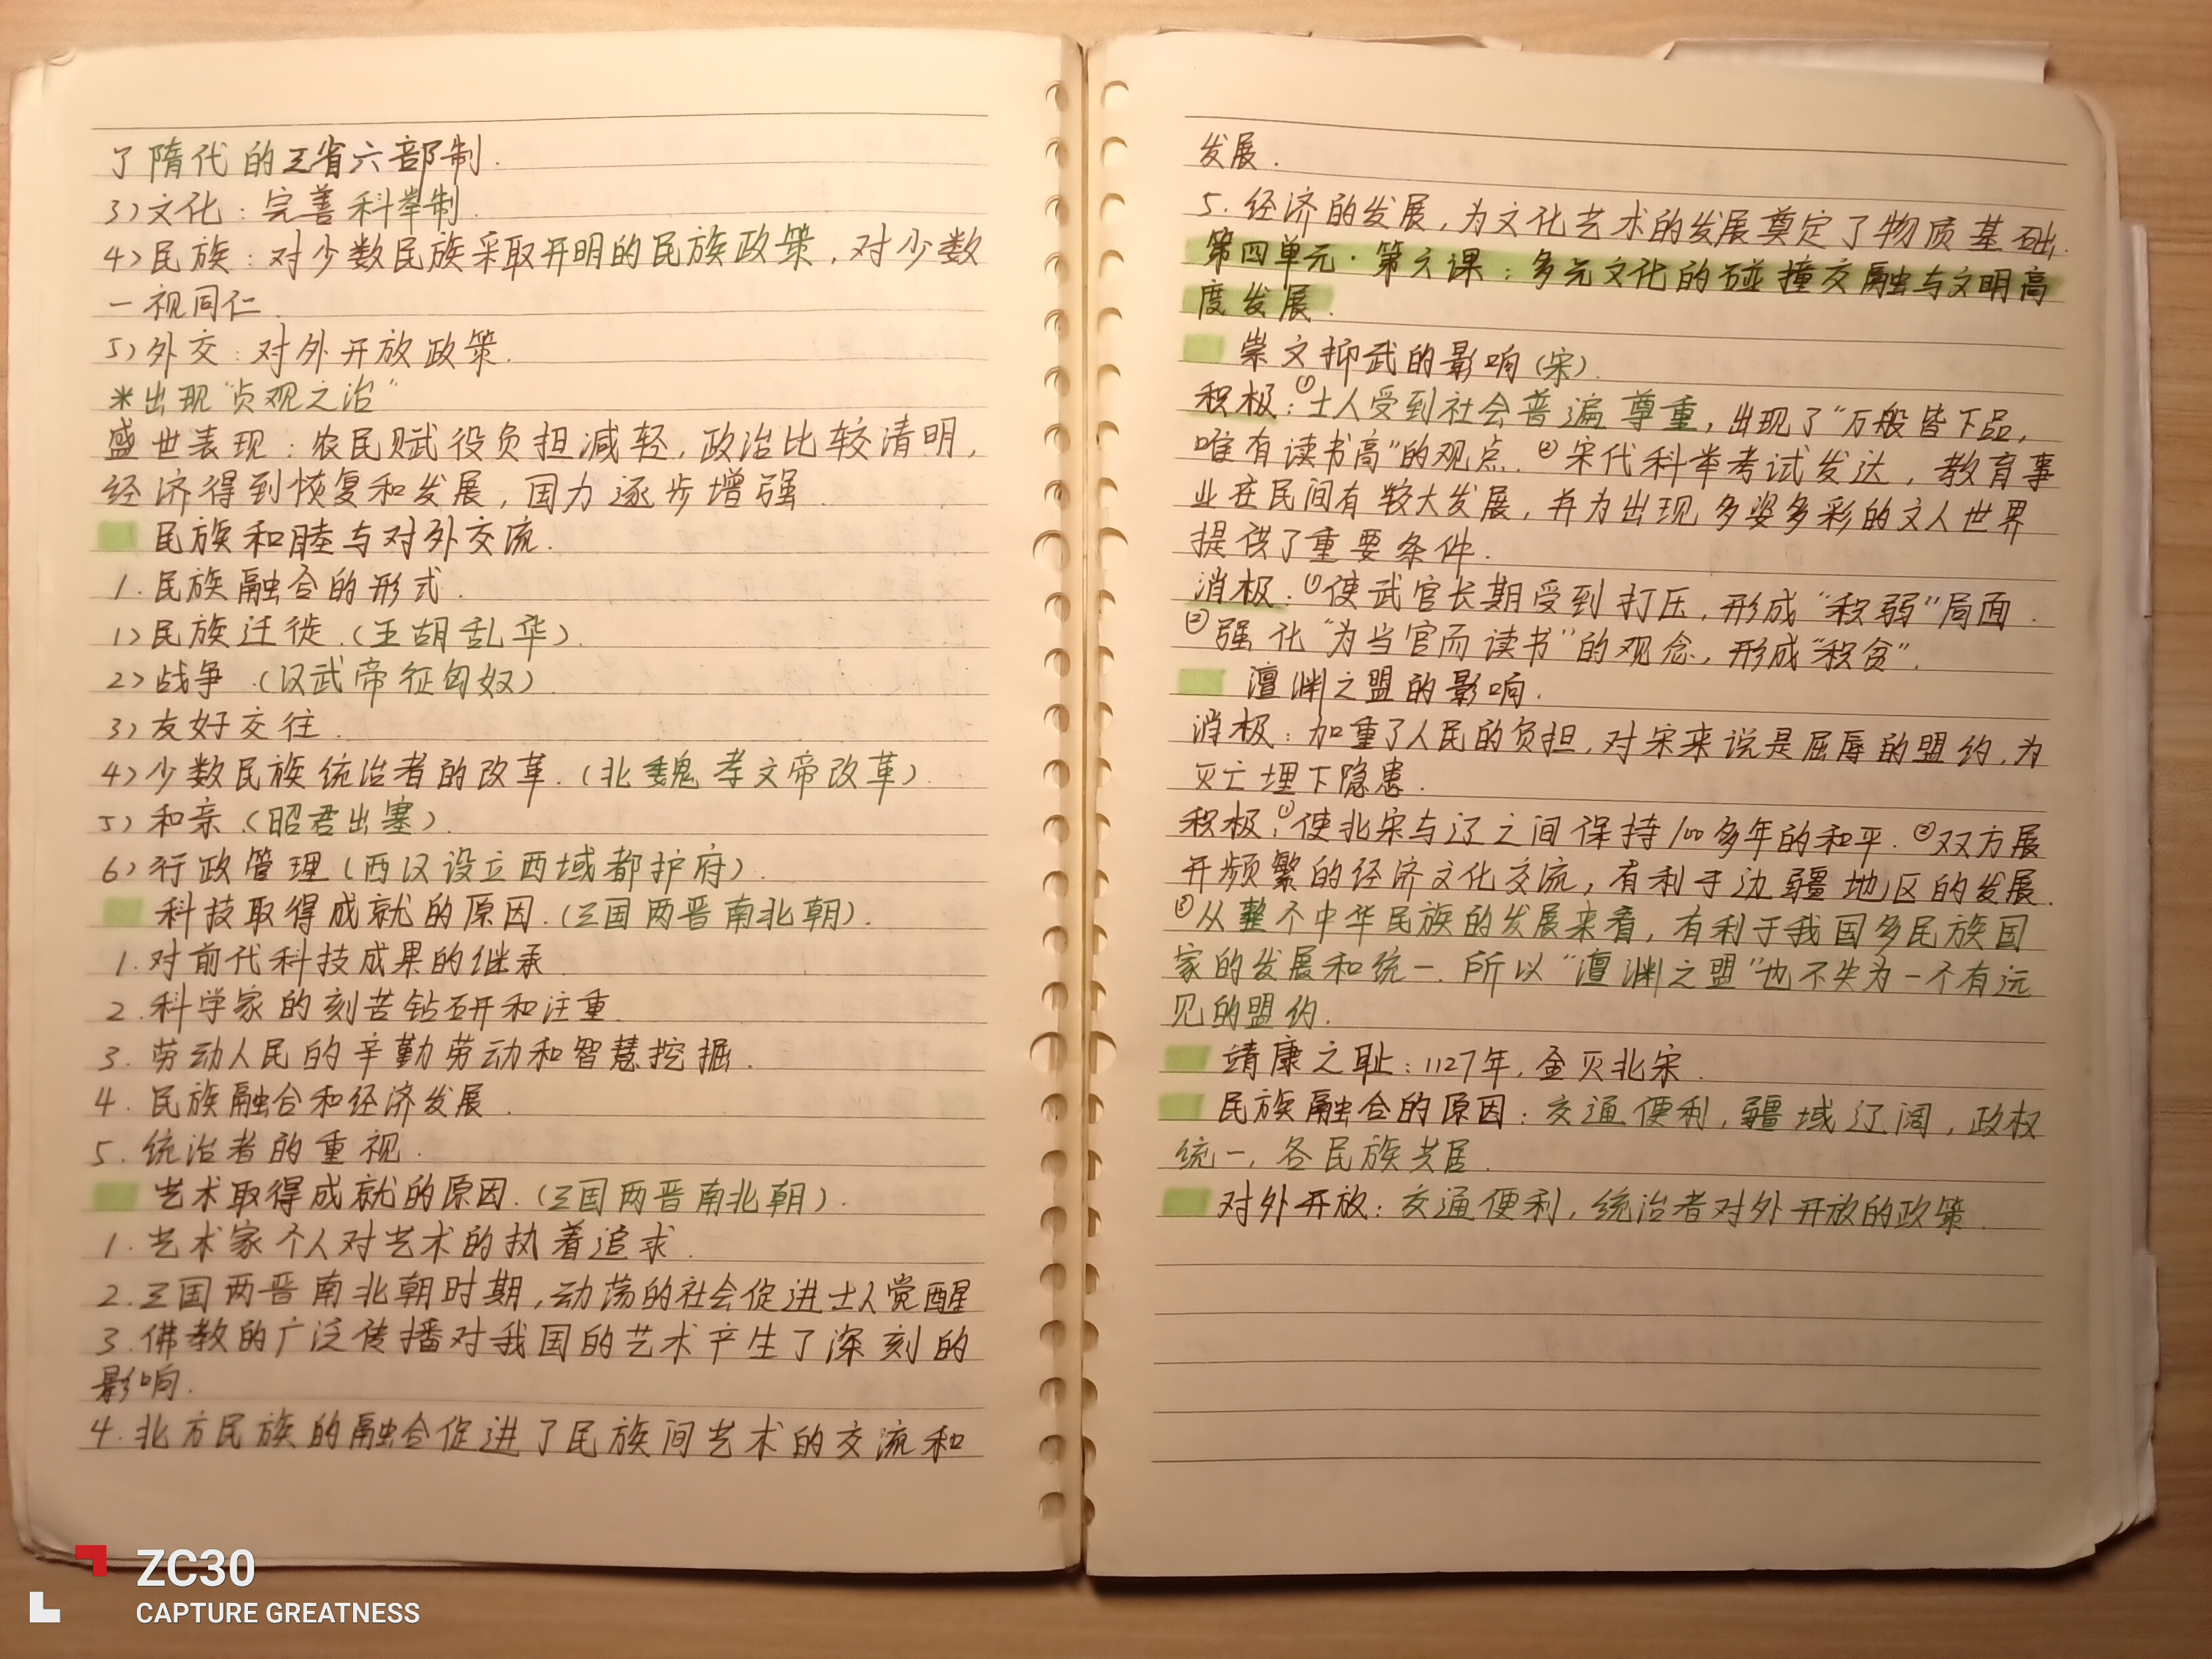 了隋代的三省六部制.
3)文化:完善科举制.
4)民族:对少数民族采取开明的民族政策,对少数
一视同仁.
5)外交:对外开放政策.
*出现“贞观之治”
盛世表现:农民赋役负担减轻,政治比较清明,
经济得到恢复和发展,国力逐步增强.
民族和睦与对外交流.
1.民族融合的形式.
1)民族迁徙.(五胡乱华).
2)战争.(汉武帝征匈奴)
3)友好交往.
4)少数民族统治者的改革.(北魏孝文帝改革).
5)和亲.(昭君出塞).
6)行政管理(西汉设立西域都护府).
科技取得成就的原因.(三国两晋南北朝).
1.对前代科技成果的继承
2.科学家的刻苦钻研和注重
3.劳动人民的辛勤劳动和智慧挖掘.
4.民族融合和经济发展.
5.统治者的重视.
艺术取得成就的原因.(三国两晋南北朝).
1.艺术家个人对艺术的执着追求.
2.三国两晋南北朝时期,动荡的社会促进士人觉醒
3.佛教的广泛传播对我国的艺术产生了深刻的
影响.
4.北方民族的融合促进了民族间艺术的交流和
发展.
5.经济的发展,为文化艺术的发展奠定了物质基础.
第四单元·第六课:多元文化的碰撞交融与文明高
度发展.
崇文抑武的影响(宋).
积极:①士人受到社会普遍尊重,出现了“万般皆下品,
唯有读书高”的观点.②宋代科举考试发达,教育事
业在民间有较大发展,并为出现多姿多彩的文人世界
提供了重要条件.
消极:①使武官长期受到打压,形成“积弱”局面.
②强化“为当官而读书”的观念,形成“积贫”.
澶渊之盟的影响.
消极:加重了人民的负担,对宋来说是屈辱的盟约,为
灭亡埋下隐患.
积极:①使北宋与辽之间保持100多年的和平.②双方展
开频繁的经济文化交流,有利于边疆地区的发展.
③从整个中华民族的发展来看,有利于我国多民族国
家的发展和统一.所以“澶渊之盟”也不失为一个有远
见的盟约.
靖康之耻:1127年,金灭北宋.
民族融合的原因:交通便利,疆域辽阔,政权
统一,各民族共居.
对外开放:交通便利,统治者对外开放的政策.
ZC30
CAPTURE GREATNESS